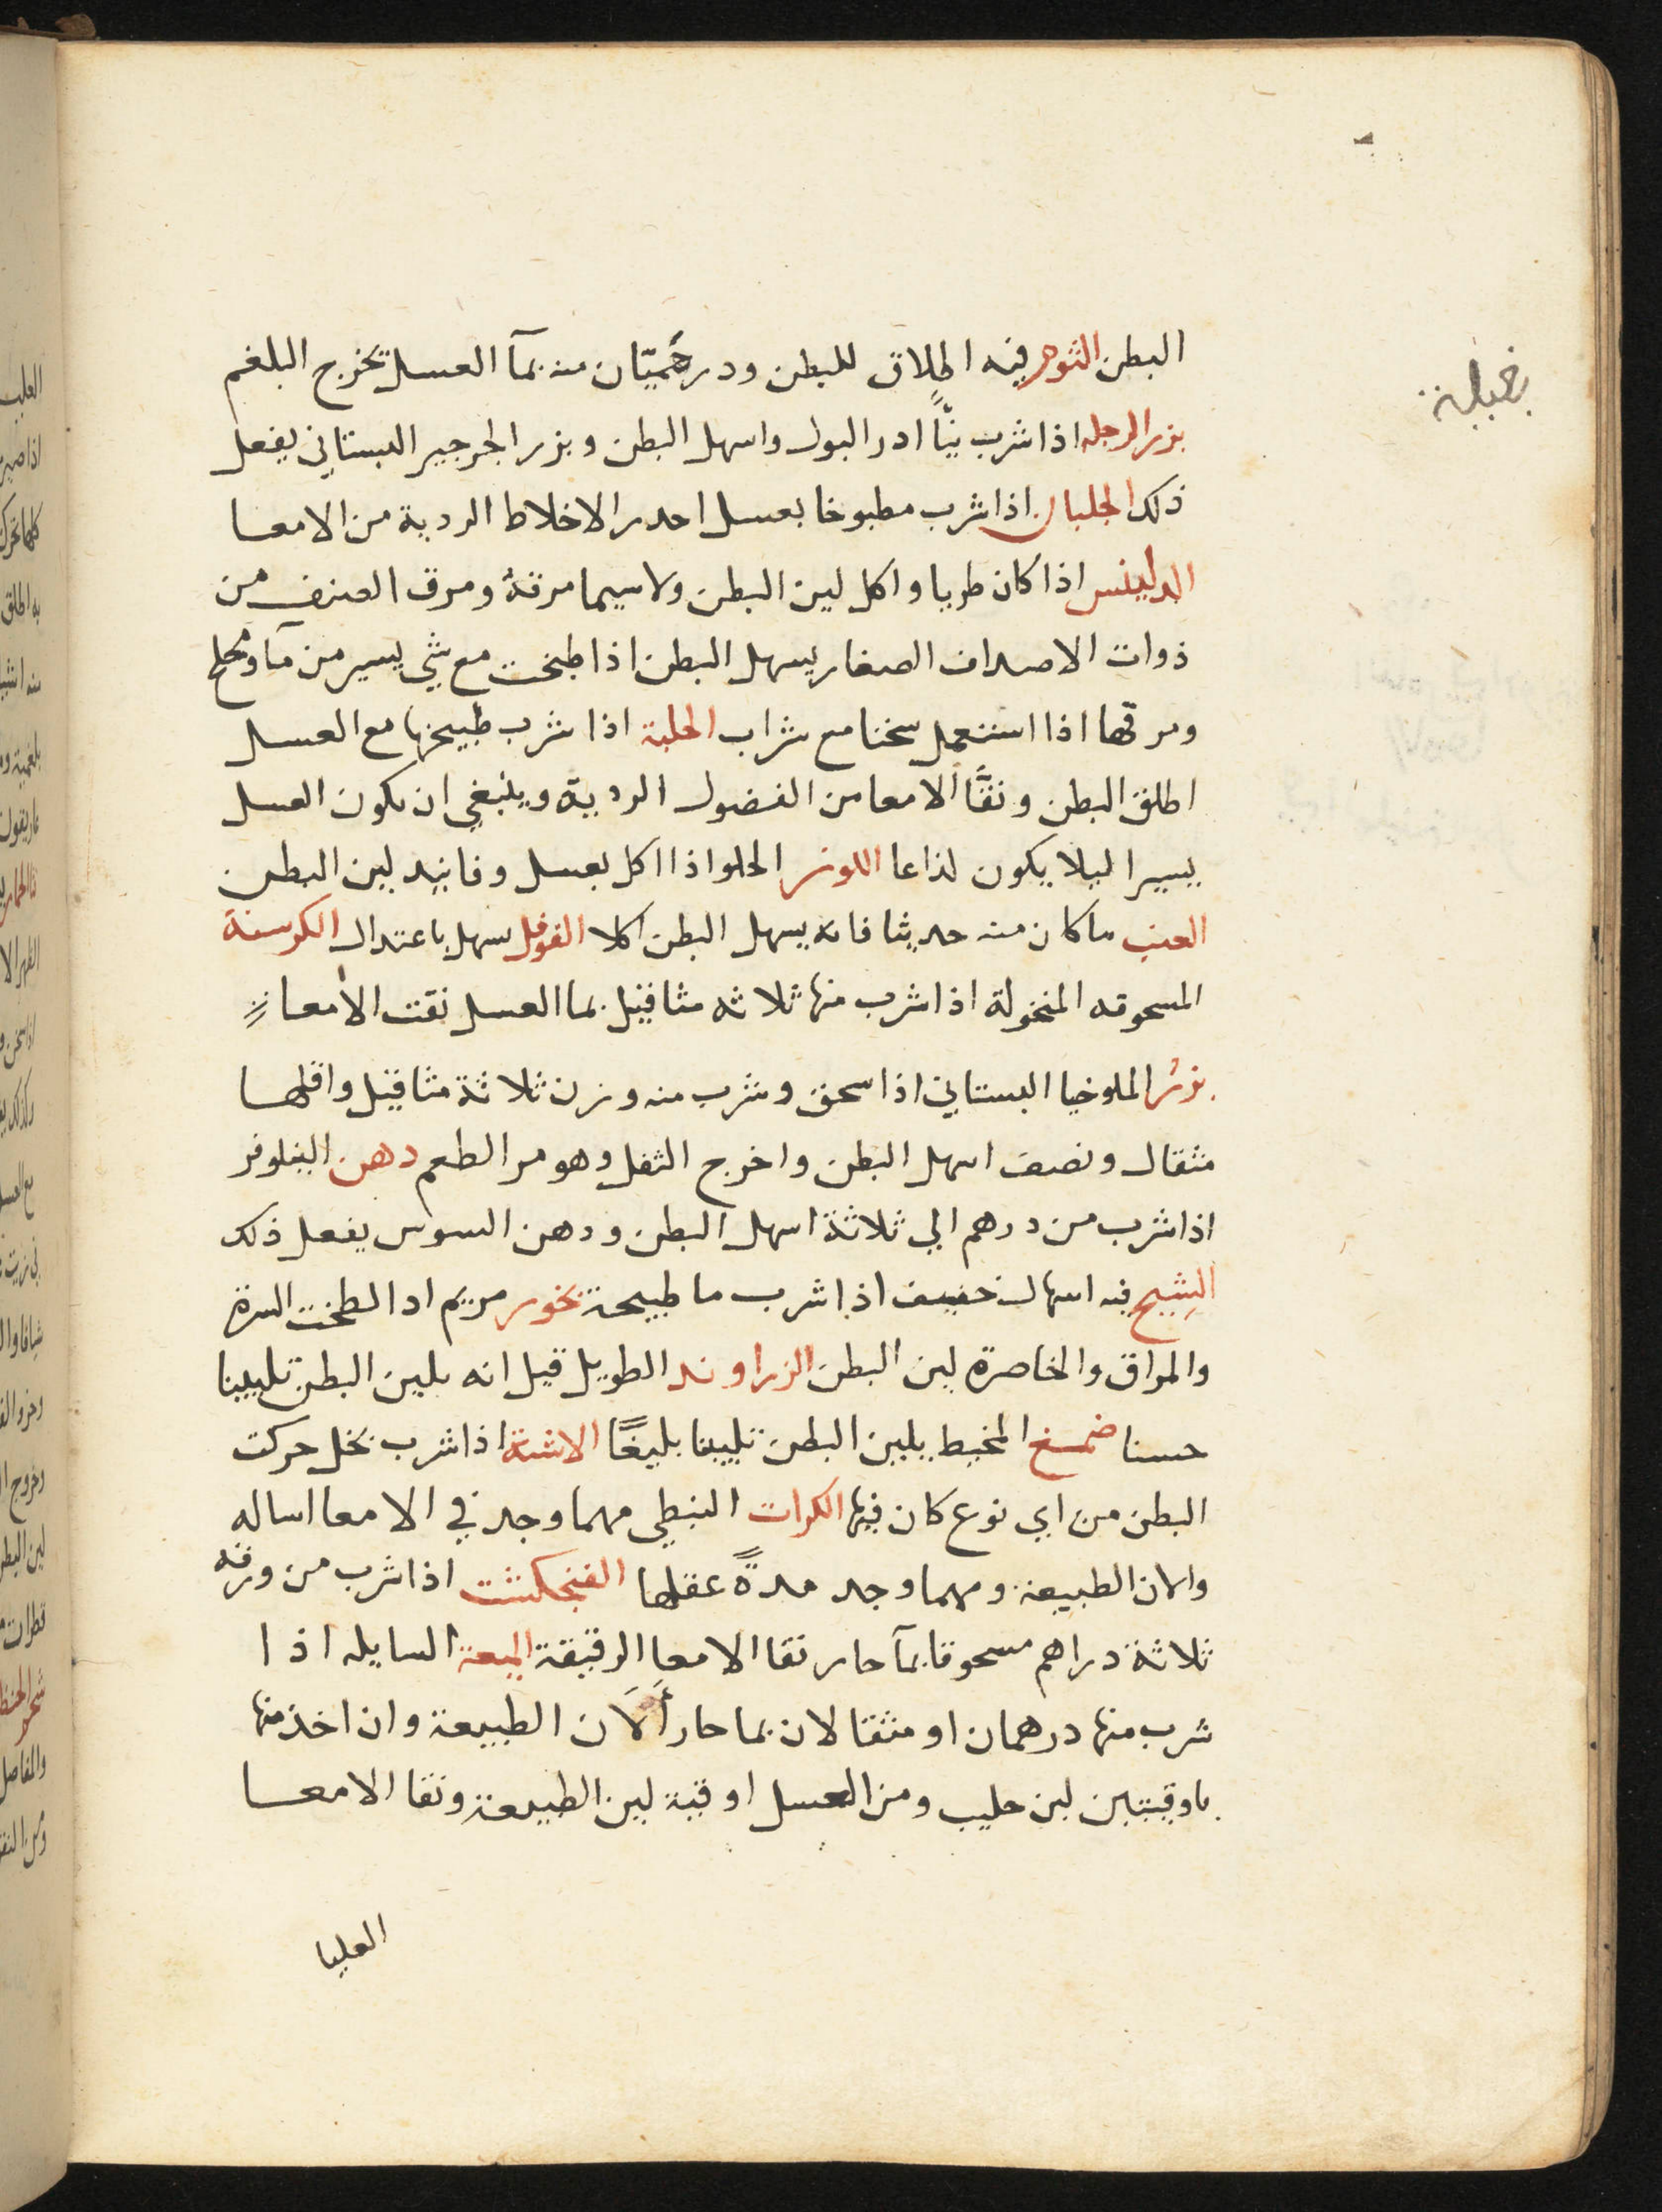 البطن الثوم فيه اطلاق للبطن ودرخميّان منه بمآ العسل تخرج البلغم
بزر الرجله اذا شرب نيّاً ادر البول واسهل البطن وبزر الجرجير البستاني يفعل
ذلك الجلبان اذا شرب مطبوخا بعسل احدر الاخلاط الردية من الامعا
الدلينس اذا كان طريا واكل لين البطن ولا سيما مرقهُ ومرق الصنف من
ذوات الاصداف الصغار يسهل البطن اذا طبخت مع شي يسير من مآ وملح
ومرقها اذا استعمل سخنا مع شراب الحلبة اذا شرب طبيخها مع العسل
اطلق البطن ونقّا الامعا من الفضول الردية وينبغي ان يكون العسل
يسيرا ليلا يكون لذاعا اللوز الحلو اذا اكل بعسل وفانيد لين البطن
العنب ما كان منه حديثا فانه يسهل البطن اكلا الفوفل يسهل باعتدال الكرسنة
المسحوقه المنخولة اذا شرب منها ثلاثه مثاقيل بما العسل نقت الامعا
بزر الملوخيا البستاني اذا سحق وشرب منه وزن ثلاثة مثاقيل واقلها
مثقال ونصف اسهل البطن واخرج الثفل وهو مر الطعم دهن النيلوفر
اذا شرب من درهم الي ثلاثة اسهل البطن ودهن السوس يفعل ذلك
الشيح فيه اسهال خفيف اذا شرب ما طبيحة بخور مريم اذا لطخت السرة
والمراق والخاصرة لين البطن الزراوند الطويل قيل انه يلين البطن تليينا
حسنا صمغ المخيط يلين البطن تليينا بليغًا الاشنة اذا شرب بخل حركت
البطن من اي نوع كان فيها الكراث النبطي مهما وجد في الامعا اساله
والان الطبيعة ومهما وجد مدةً عقلها الفنجكشت اذا شرب من ورقه
ثلاثة دراهم مسحوقا بمآ حار نقا الامعا الرقيقة الميعة السايله اذا
شرب منها درهمان او مثقالان بما حار أَلَان الطبيعة وان اخذ منها
باوقيتين لبن حليب ومن العسل اوقية لين الطبيعة ونقا الامعا
العليا